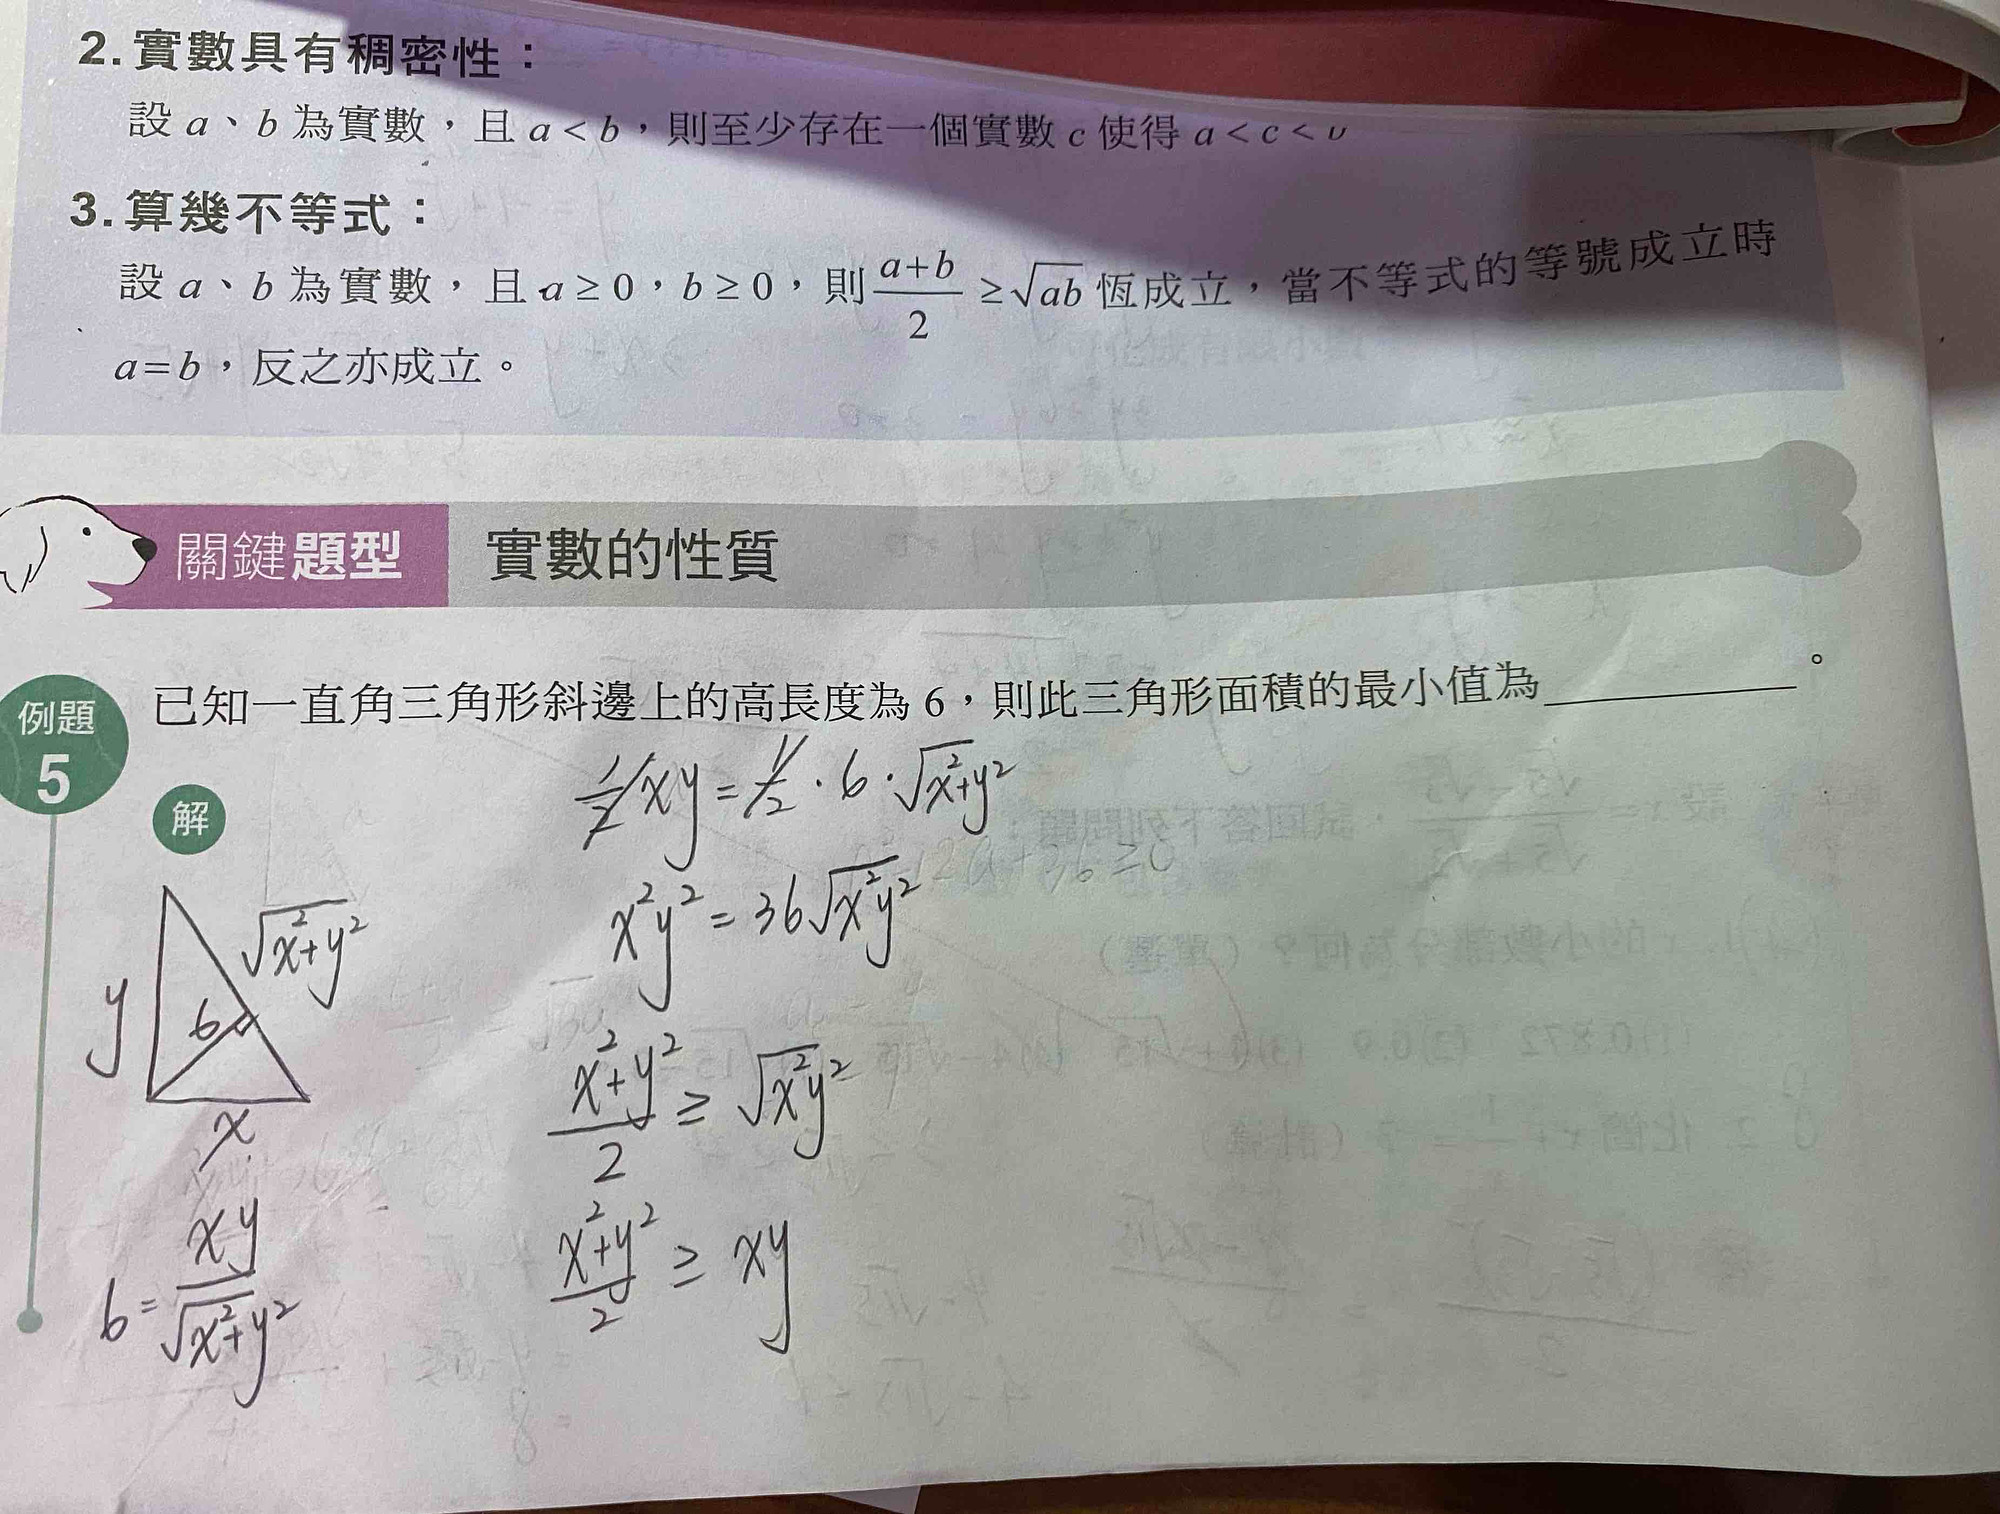 2. 實數具有稠密性：
設 a、b 為實數，且 a < b，則至少存在一個實數 c 使得 a < c < b
3. 算幾不等式：
設 a、b 為實數，且 a ≥ 0，b ≥ 0，則 \frac{a+b}{2} ≥ √ab 恆成立，當不等式的等號成立時
a = b，反之亦成立。
關鍵題型 實數的性質
例題
5
已知一直角三角形斜邊上的高長度為 6，則此三角形面積的最小值為________。
解
\frac{1}{2}xy = \frac{1}{2} · 6 · √x²+y²
x²y² = 36√x²y²
√x²+y²
y
6
x
\frac{x²+y²}{2} ≥ √x²y²
\frac{x²+y²}{2} ≥ xy
6 = \frac{xy}{√x²+y²}